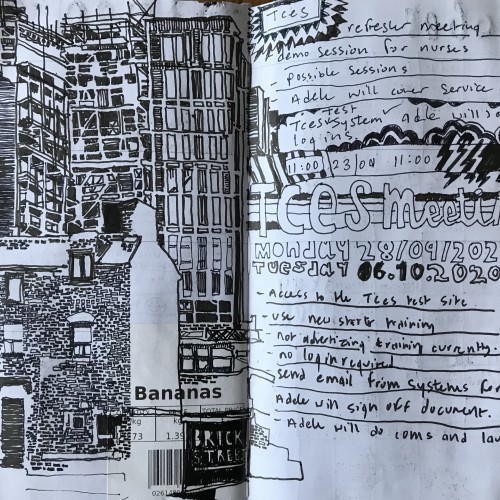 Bananas
kg
kg
73
1.39
BRICK
STREET
Tces
refresher meeting
demo session for nurses
- possible sessions
- Adele will cover service
Tces test
Tces system
Adele will
log ins
11:00 23/09 11:00
TCES meet
MONDAY 28/09/202
TUESDAY 06.10.2020
- Access to the Tces test site.
- use new starter training
not advertizing training currently.
no log in required
send email from systems for
Adele will sign off document.
- Adele will do coms and